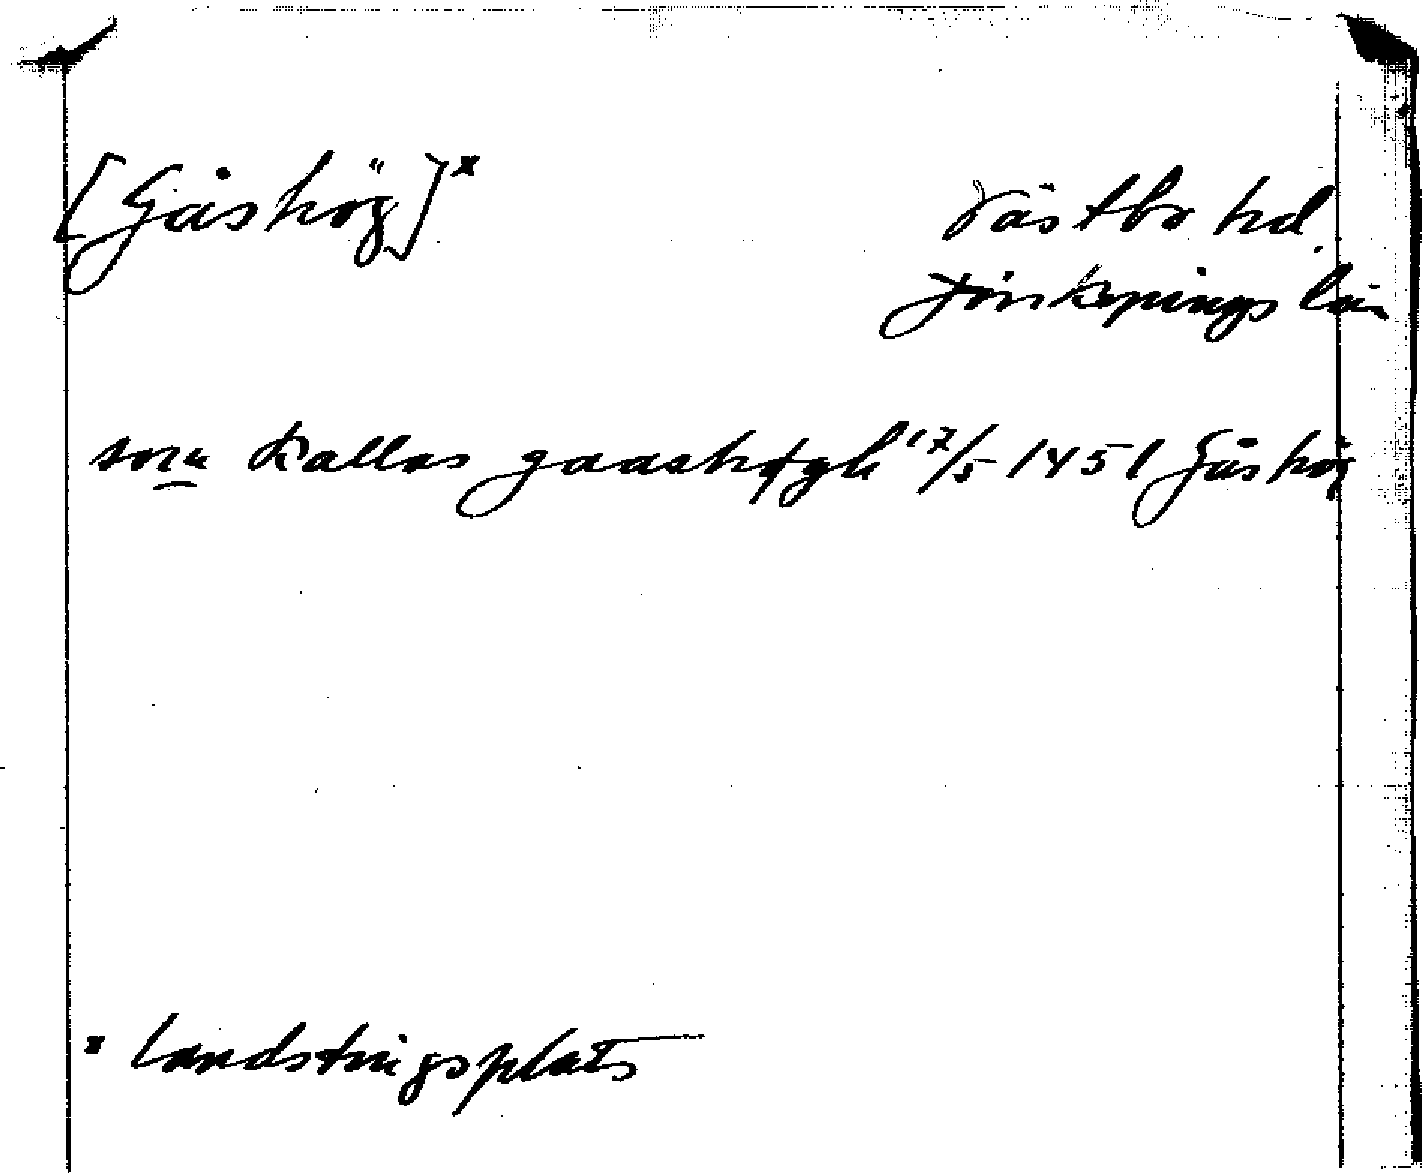 [Gåshög]x
Västbo hd.
Jönköpings län
som kallas gaashøgh 17/5 1451 Gåshög
x landstingsplats